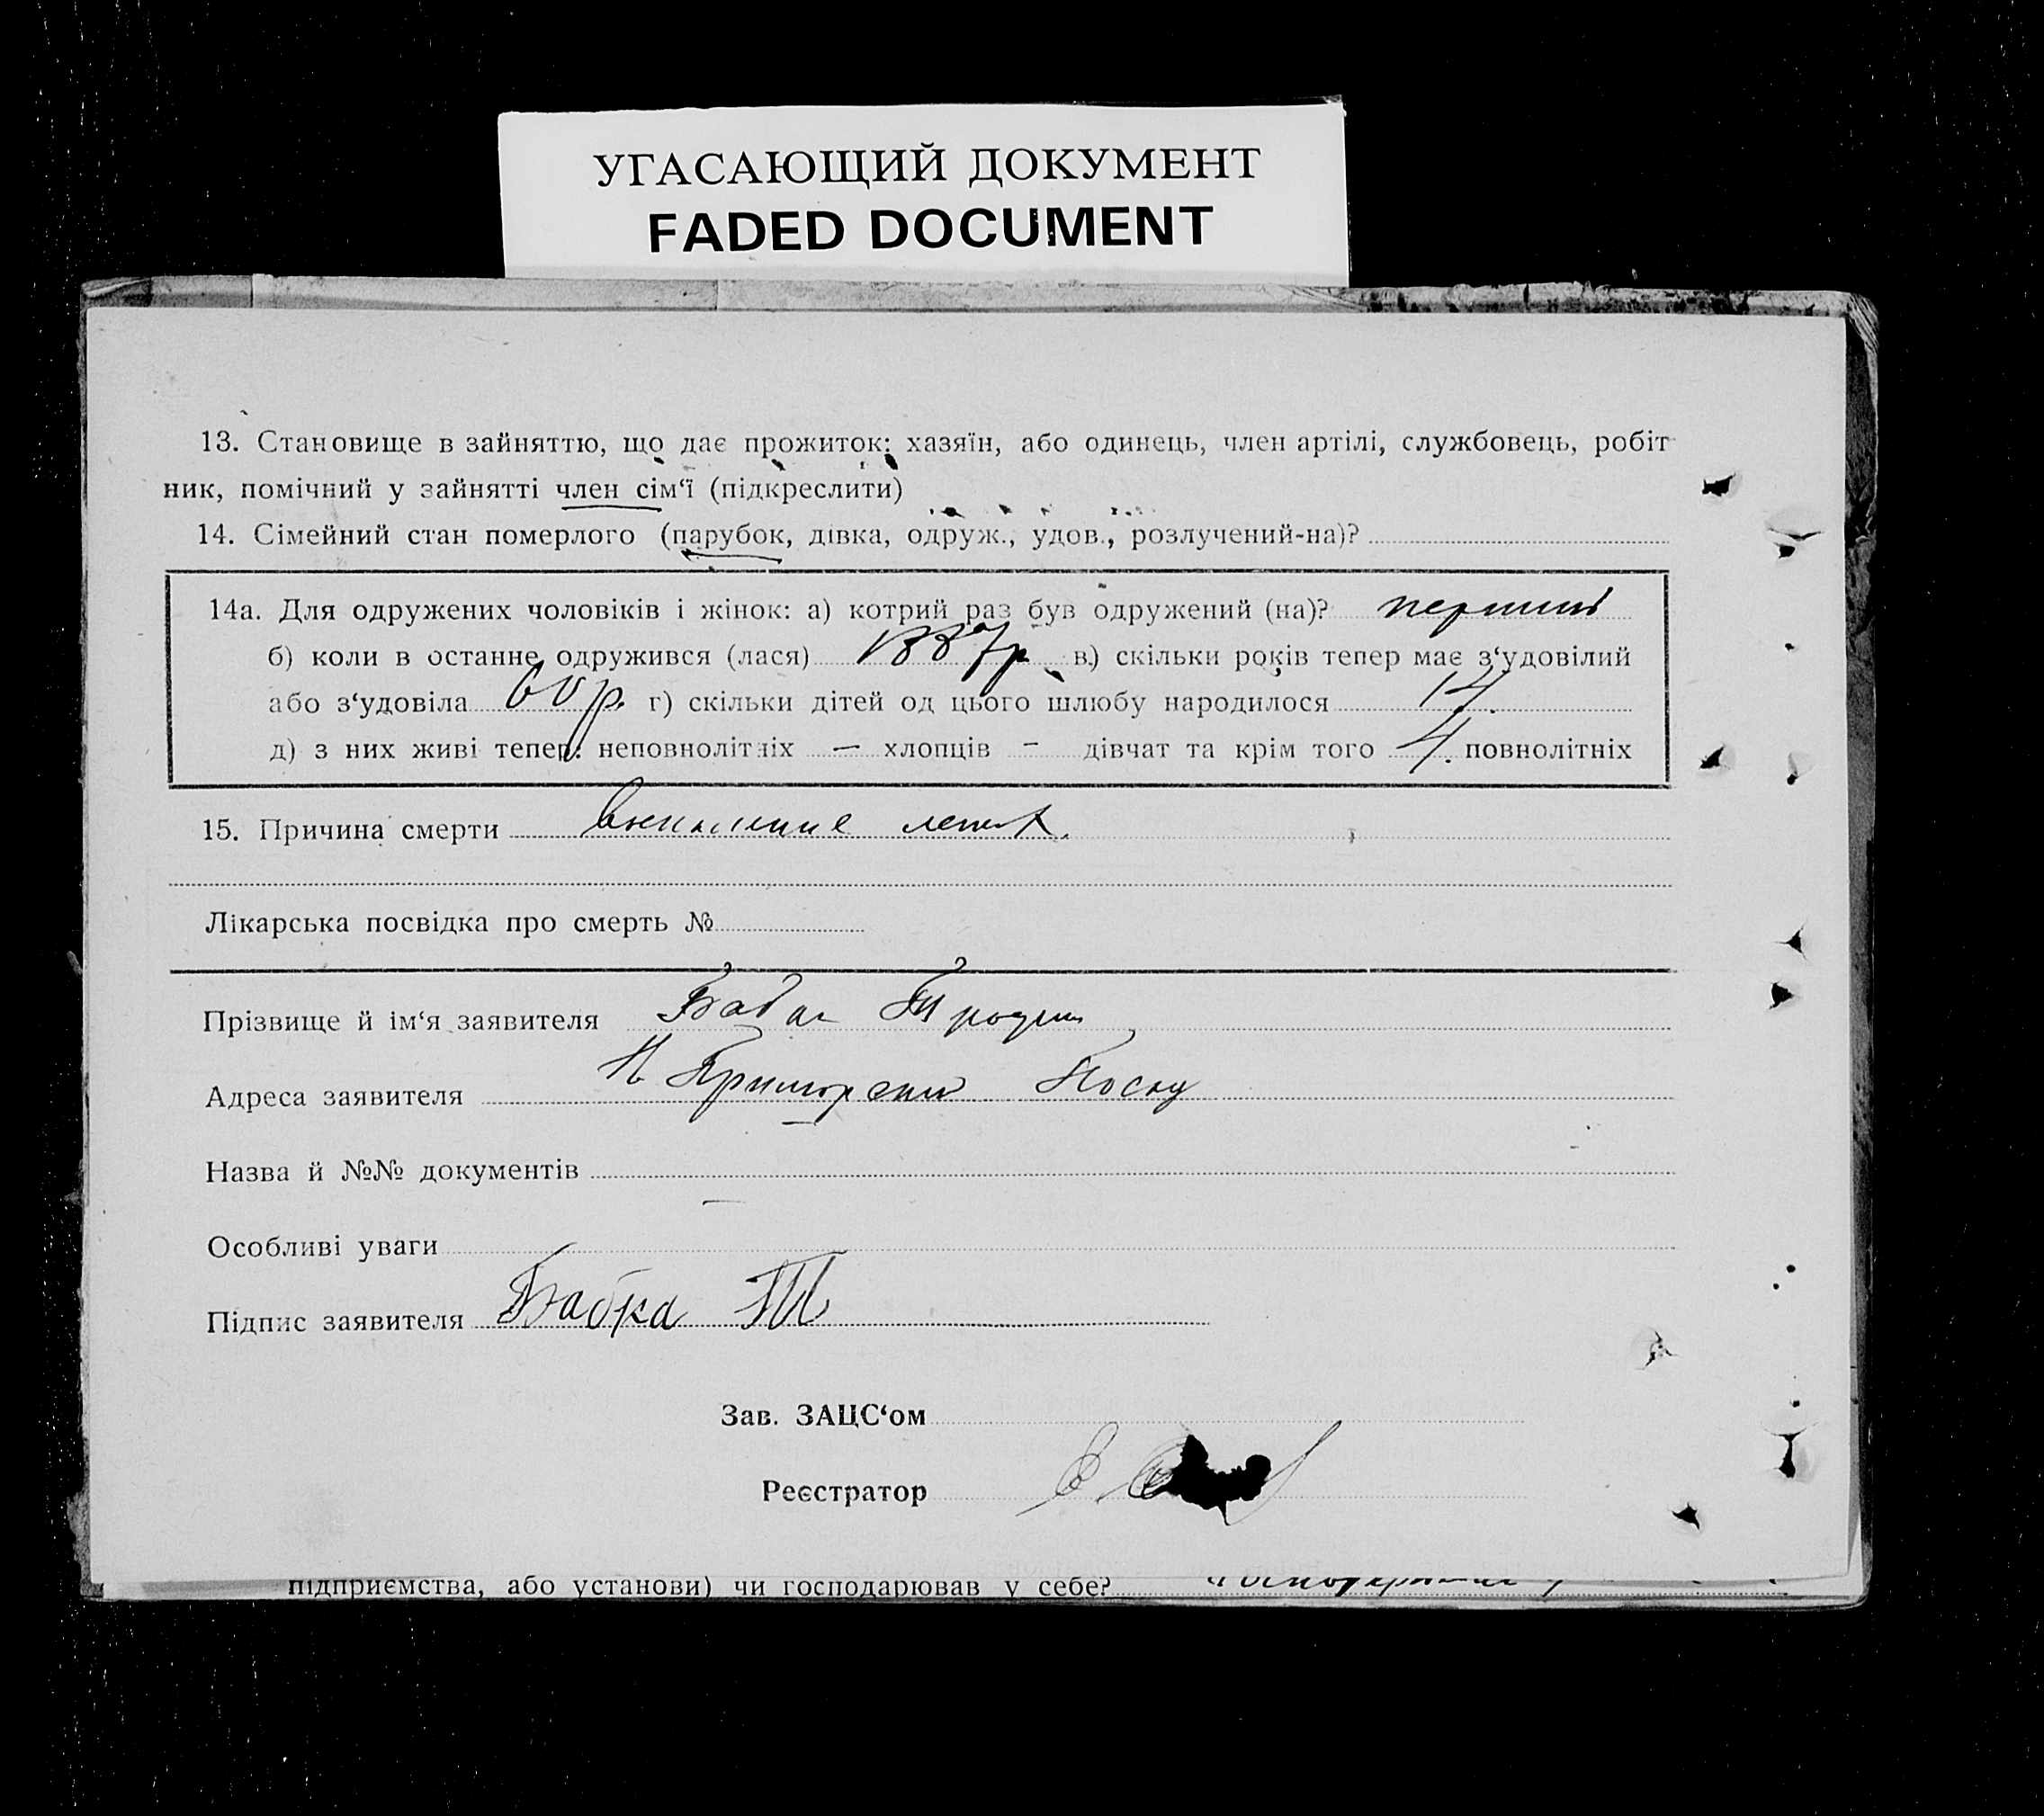 УГАСАЮЩИЙ ДОКУМЕНТ
FADED DOCUMENT
13. Становище в зайняттю, що дає прожиток: хазяїн, або одинець, член артілі, службовець, робіт
ник, помічний у зайнятті член сім‘ї (підкреслити)
14. Сімейний стан померлого (парубок, дівка, одруж., удов., розлучений-на)?
14а. Для одружених чоловіків і жінок: а) котрий раз був одружений (на)? перший
б) коли в останнє одружився (лася) 1887р в.) скільки років тепер має з‘удовілий
або з‘удовіла 60 р. г) скільки дітей од цього шлюбу народилося 14.
д) з них живі тепер: неповнолітніх — хлопців - дівчат та крім того 4. повнолітніх
15. Причина смерти воспаление легких.
Лікарська посвідка про смерть №
Прізвище й ім‘я заявителя
Адреса заявителя
Назва й №№ документів
Особливі уваги
Підпис заявителя Бабка
Зав. ЗАЦС‘ом
Реєстратор
підприємства, або установи) чи господарював у себе?